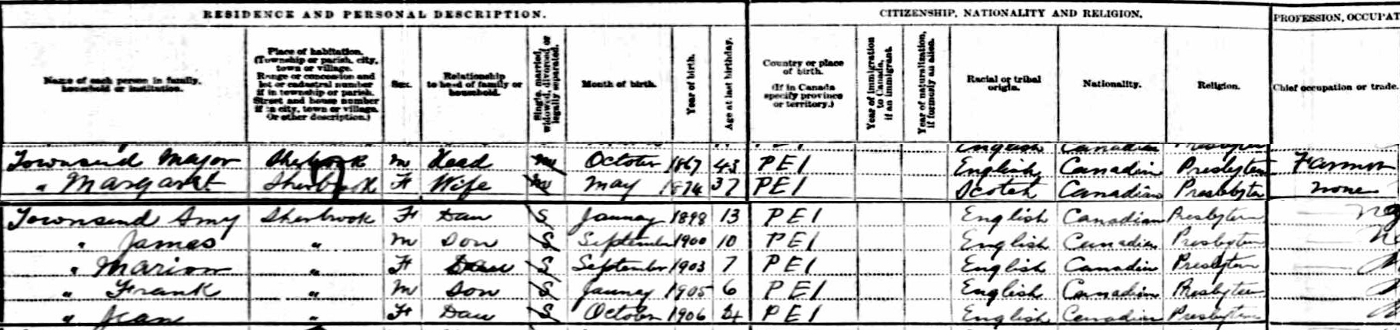 RESIDENCE AND PERSONAL DESCRIPTION. CITIZENSHIP, NATIONALITY AND RELIGION. PROFESSION, OCCUPAT
Name of each person in family, household or institution. Place of habitation. (Township or parish, city, town or village. Range or concession and lot or cadastral number if in township or parish. Street and house number if in city, town or village. Or other description.) Sex. Relationship to head of family or household. Single, married, widowed, divorced or legally separated. Month of birth. Year of birth. Age at last birthday. Country or place of birth. (If in Canada specify province or territory.) Year of immigration to Canada, if an immigrant. Year of naturalization, if formerly an alien. Racial or tribal origin. Nationality. Religion. Chief occupation or trade.
English Canadian Presbyter
Townsend Major Sherbrook M Head M October 1867 43 PEI English Canadian Presbyter Farmer
" Margaret Sherbrook F Wife M May 1874 37 PEI Scotch Canadian Presbyter none
Townsend Amy Sherbrook F Dau S Januay 1898 13 PEI English Canadian Presbyter
" James " M Son S September 1900 10 PEI English Canadian Presbyter
" Marion " F Dau S September 1903 7 PEI English Canadian Presbyter
" Frank " M Son S Januay 1905 6 PEI English Canadian Presbyter
" Jean " F Dau S October 1906 4 PEI English Canadian Presbyter